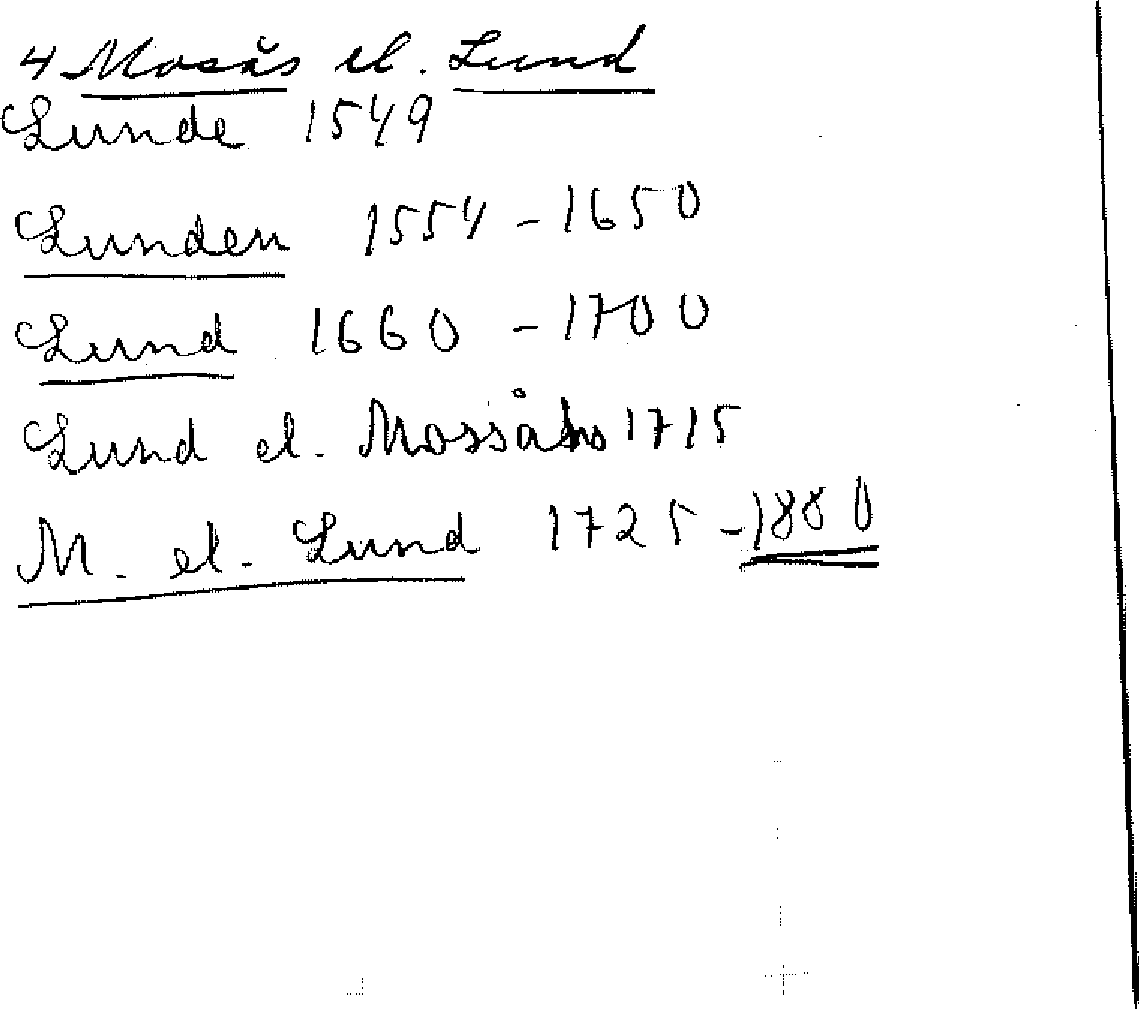 4 Mosås el. Lund
Lunde 1549
Lunden 1554-1650
Lund 1660-1700
Lund el. Mossåhs 1715
M. el. Lund 1725-1880